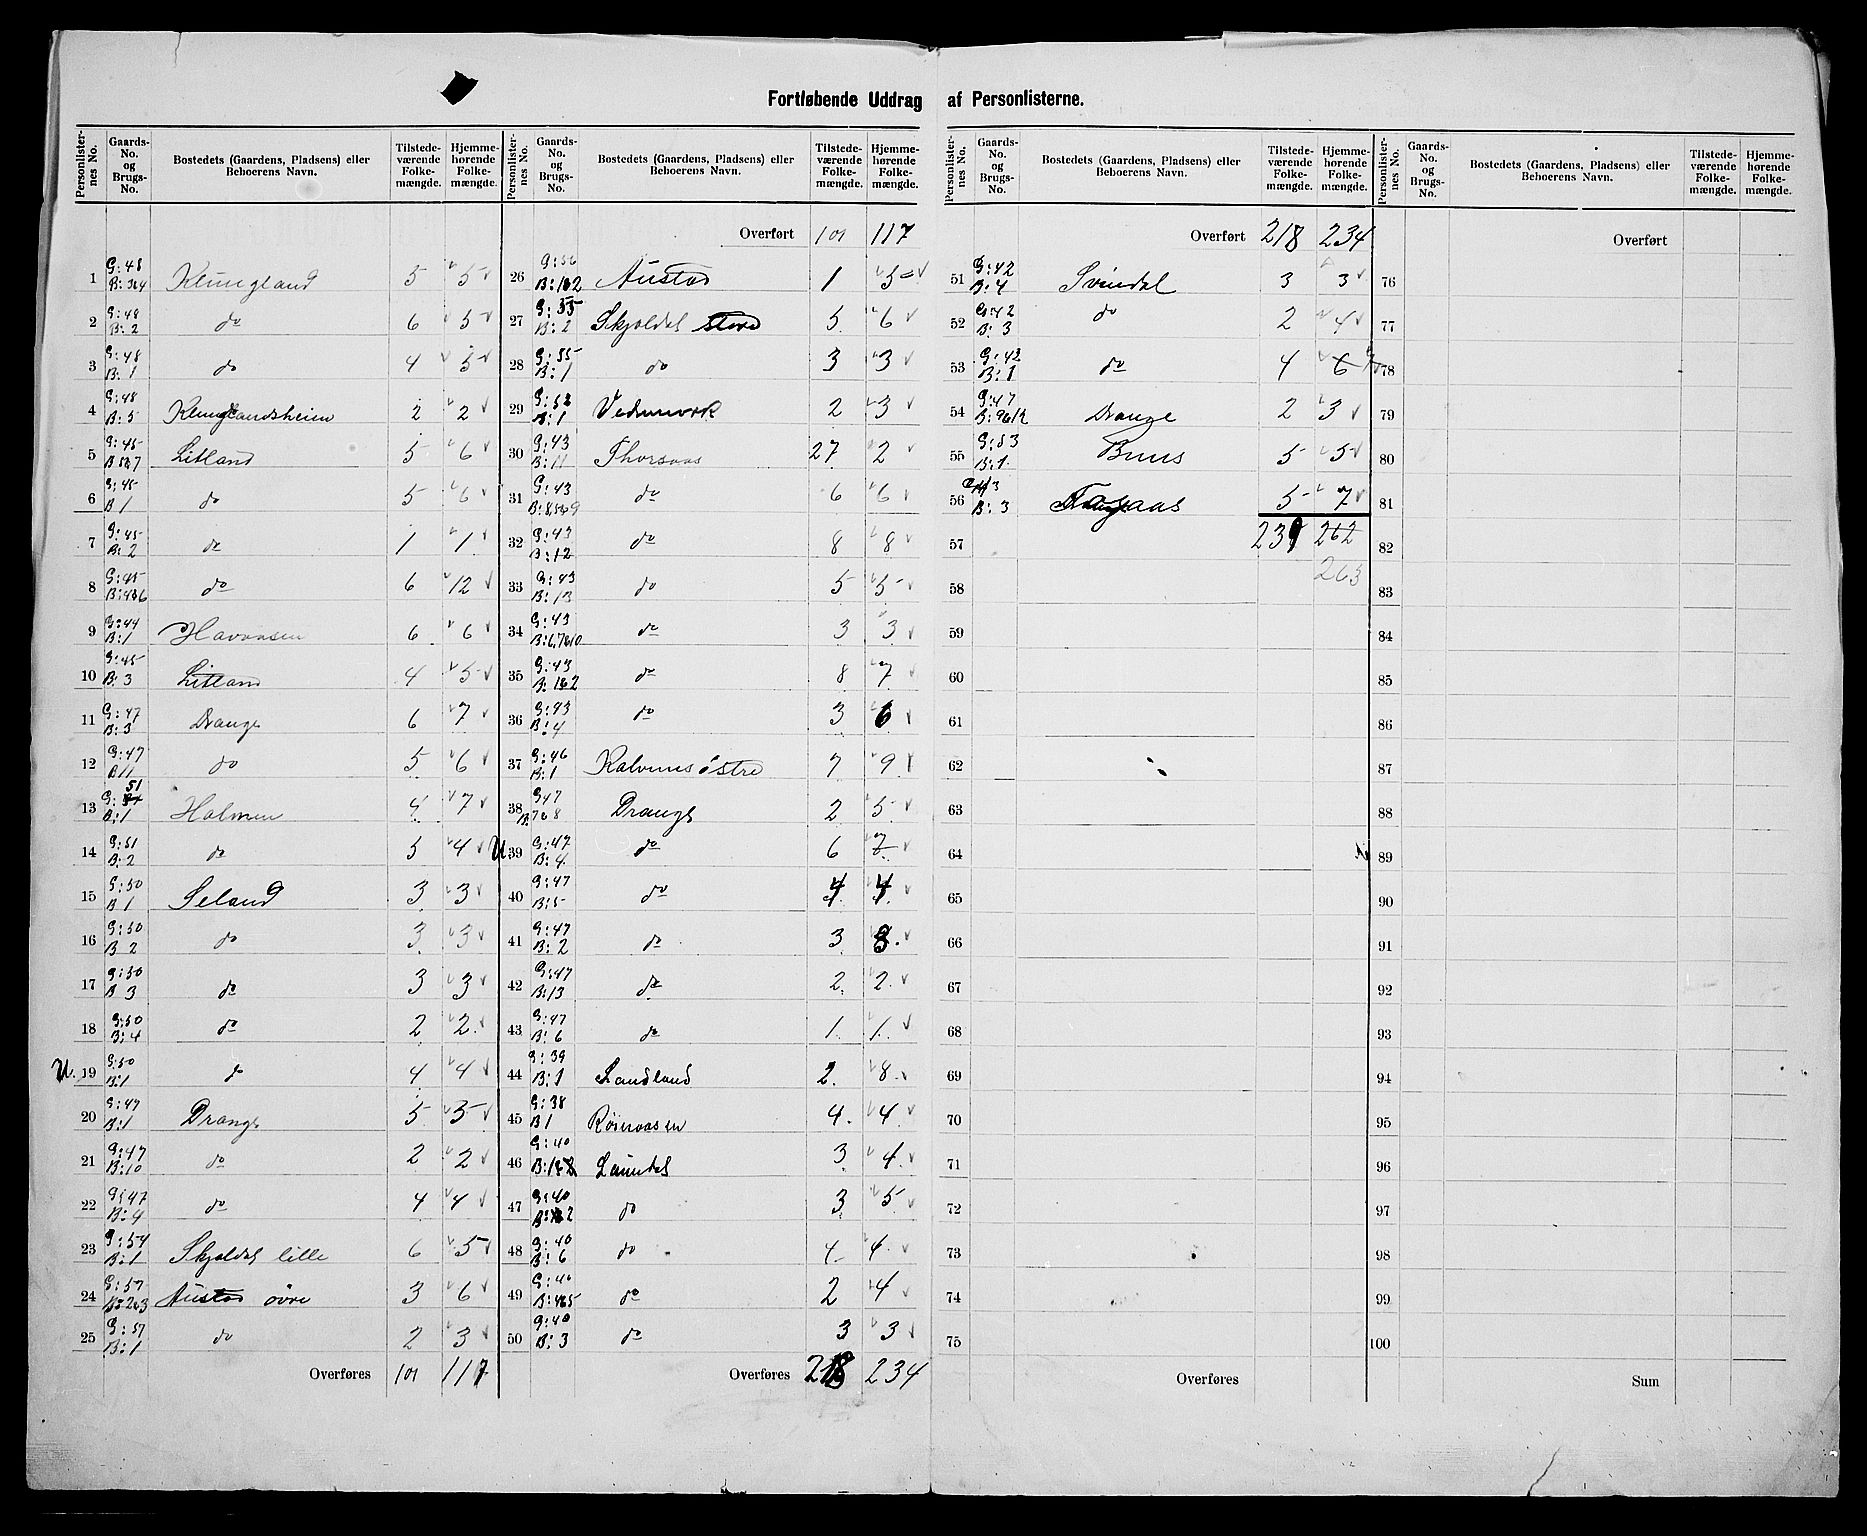 Fortløbende Uddrag af Personlisterne.
Personlister-nes No. Gaards-No. og Brugs-No. Bostedets (Gaardens, Pladsens) eller Beboerens Navn. Tilstede-værende Folke-mængde. Hjemme-hørende Folke-mængde.
1 G:48 B:3&4 Klungland 5 5
2 G:48 B:2 do 6 5
3 G:48 B:1 do 4 5
4 G:48 B:5 Klunglandsheim 2 2
5 G:45 B:5&7 Litland 5 6
6 G:45 B1 do 5 6
7 G:45 B:2 do 1 1
8 G:45 B:4&6 do 6 12
9 G:44 B:1 Havaasen 6 6
10 G:45 B:3 Litland 4 5
11 G:47 B:3 Drange 6 7
12 G:47 B11 do 5 6
13 G:51 B:1 Holmen 4 7
14 G:51 B:2 do 5 4
15 G:50 B1 Seland 3 3
16 G:50 B2 do 3 3
17 G:50 B3 do 3 3
18 G:50 B:4 do 2 2
U. 19 G:50 B:1 do 4 4
20 G:47 B:1 Drange 5 5
21 G:47 B:10 do 2 2
22 G:47 B:4 do 4 4
23 G:54 B:1 Skjoldal lille 6 5
24 G:57 B:2&3 Austad øvre 3 6
25 G:57 B:1 do 2 3
Overføres 101 117
Personlister-nes No. Gaards-No. og Brugs-No. Bostedets (Gaardens, Pladsens) eller Beboerens Navn. Tilstede-værende Folke-mængde. Hjemme-hørende Folke-mængde.
Overført 101 117
26 G:56 B:1&2 Austad 1 5
27 G:55 B:2 Skjoldal store 5 6
28 G:55 B:1 do 3 3
29 G:52 B:1 2 3
30 G:43 B:11 Thorsaas 27 2
31 G:43 B:8,5&9 do 6 6
32 G:43 B:12 do 8 8
33 G:43 B:13 do 5 5
34 G:43 B:6,7&10 do 3 3
35 G:43 B:1&2 do 8 7
36 G:43 B:4 do 3 6
37 G:46 B:1 østre 7 9
38 G47 B:7&8 Drange 2 5
U 39 G:47 B:4 do 6 7
40 G:47 B:5 do 4 4
41 G:47 B:2 do 3 8
42 G:47 B:13 do 2 2
43 G:47 B:6 do 1 1
44 G:39 B:1 Landland 2 8
45 G:38 B1 Røinaasen 4 4
46 G:40 B:1&2 3 4
47 G:40 do 3 5
48 G:40 B:6 do 4 4
49 G:40 B:4&5 do 2 4
50 G:40 B:3 do 3 3
Overføres 218 234
Personlister-nes No. Gaards-No. og Brugs-No. Bostedets (Gaardens, Pladsens) eller Beboerens Navn. Tilstede-værende Folke-mængde. Hjemme-hørende Folke-mængde.
Overført 218 234
51 G:42 B:4 Svindal 3 3
52 G:42 B:3 do 2 4
53 G:42 B:1 do 4 6
54 G:47 B:9&12 Drange 2 3
55 G:53 B:1 Buus 5 5
56 B:3 5 7
57 239 262
58 263
59
60
61
62
63
64
65
66
67
68
69
70
71
72
73
74
75
Overføres
Personlister-nes No. Gaards-No. og Brugs-No. Bostedets (Gaardens, Pladsens) eller Beboerens Navn. Tilstede-værende Folke-mængde. Hjemme-hørende Folke-mængde.
Overført
76
77
78
79
80
81
82
83
84
85
86
87
88
89
90
91
92
93
94
95
96
97
98
99
100
Sum